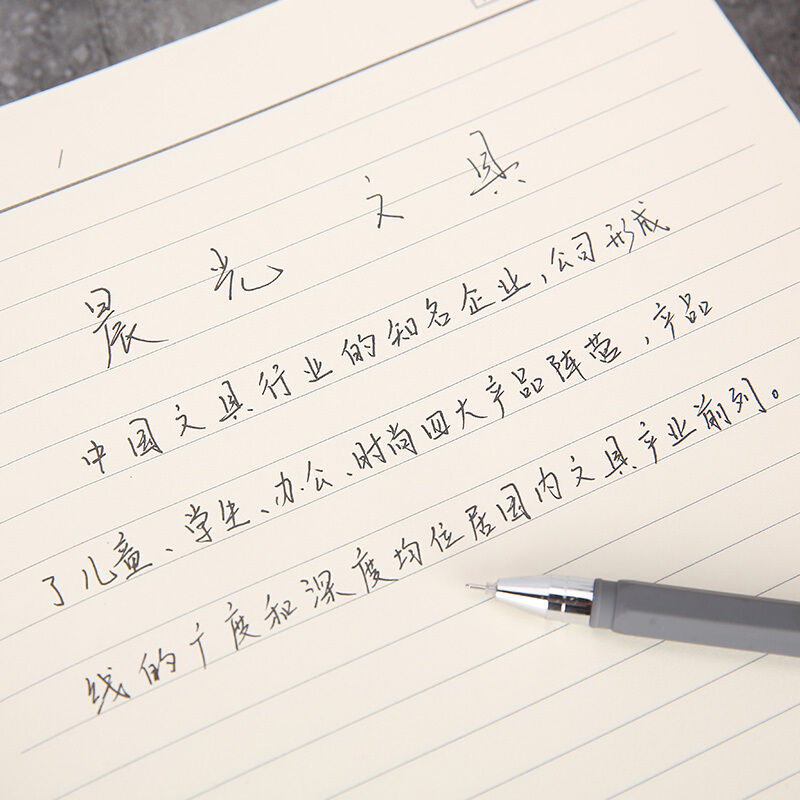 晨光文具
中国文具行业的知名企业,公司形成
了儿童、学生、办公、时尚四大产品阵营,产品
线的广度和深度均位居国内文具产业前列。